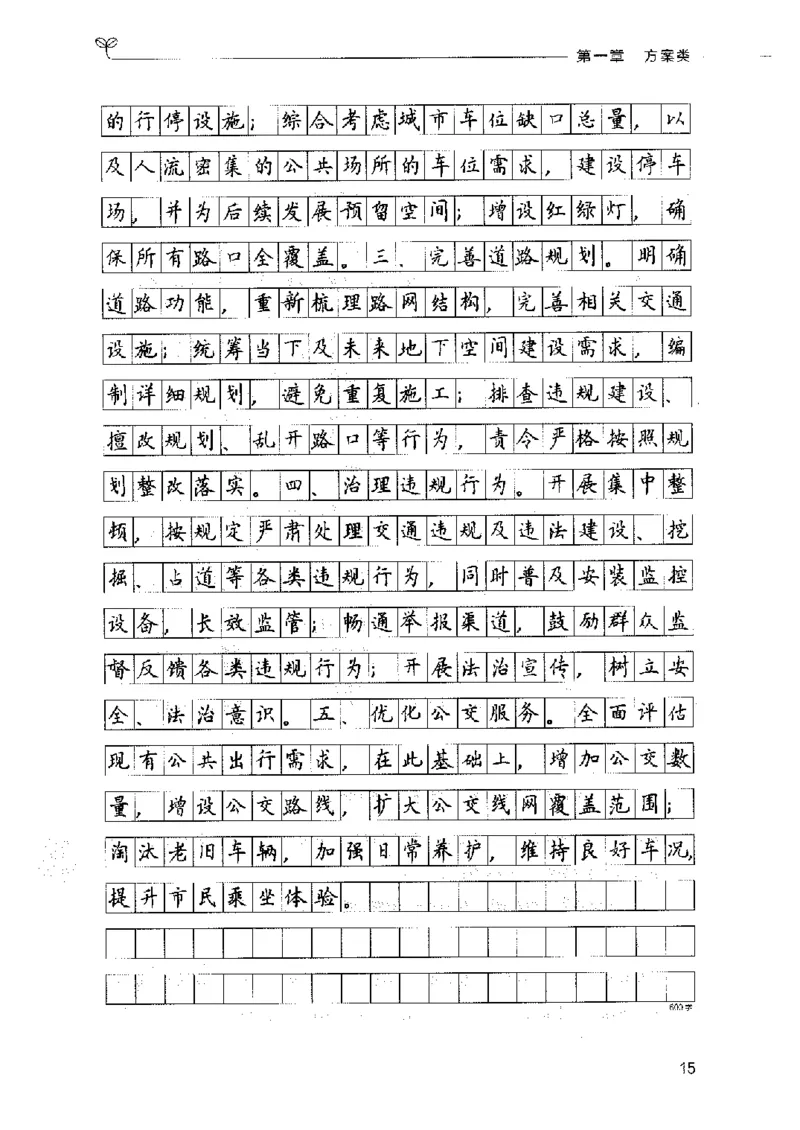 第一章 方案类
的行停设施；综合考虑城市车位缺口总量，以
及人流密集的公共场所的车位需求，建设停车
场，并为后续发展预留空间；增设红绿灯，确
保所有路口全覆盖。三、完善道路规划。明确
道路功能，重新梳理路网结构，完善相关交通
设施；统筹当下及未来地下空间建设需求，编
制详细规划，避免重复施工；排查违规建设、
擅改规划、乱开路口等行为，责令严格按照规
划整改落实。四、治理违规行为。开展集中整
顿，按规定严肃处理交通违规及违法建设、挖
掘、占道等各类违规行为，同时普及安装监控
设备，长效监管；畅通举报渠道，鼓励群众监
督反馈各类违规行为；开展法治宣传，树立安
全、法治意识。五、优化公交服务。全面评估
现有公共出行需求，在此基础上，增加公交数
量，增设公交路线，扩大公交线网覆盖范围；
淘汰老旧车辆，加强日常养护，维持良好车况，
提升市民乘坐体验。
600字
15